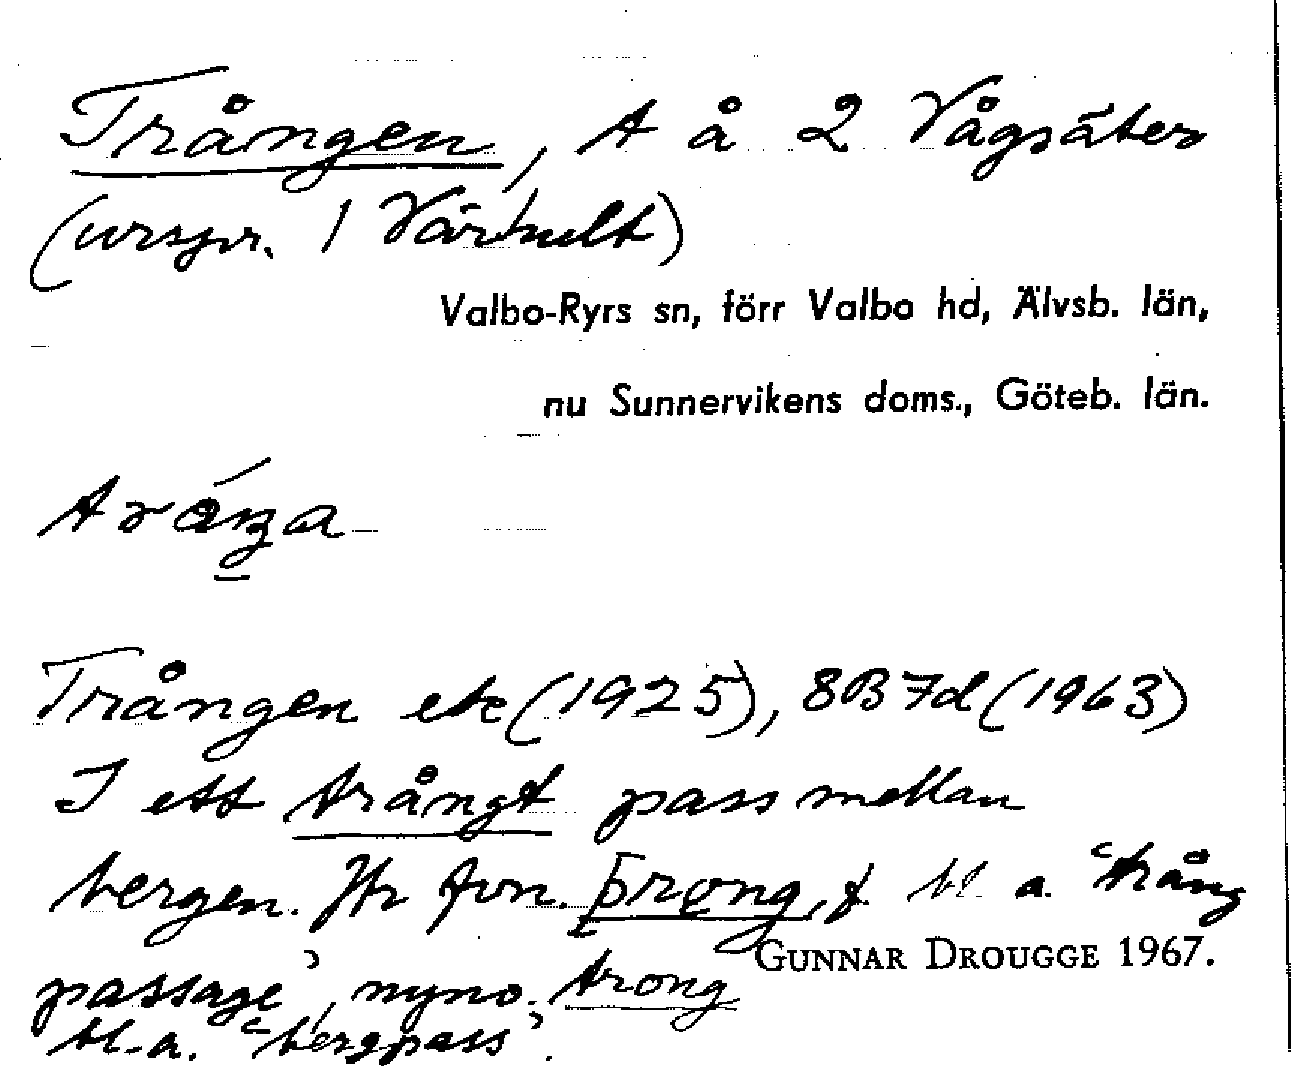 Trången, t å 2 Vågsäter
(urspr. 1 Värhult)
Valbo-Ryrs sn, förr Valbo hd, Älvsb. län,
nu Sunnervikens doms., Göteb. län.
Trången etc (1925), 8B 7d (1963)
I ett trångt pass mellan
bergen. Jfr fvn. þrǫng, f. bl. a. ‘trång
passage’, nyno. trong
bl. a. ‘bergpass’.
GUNNAR DROUGGE 1967.